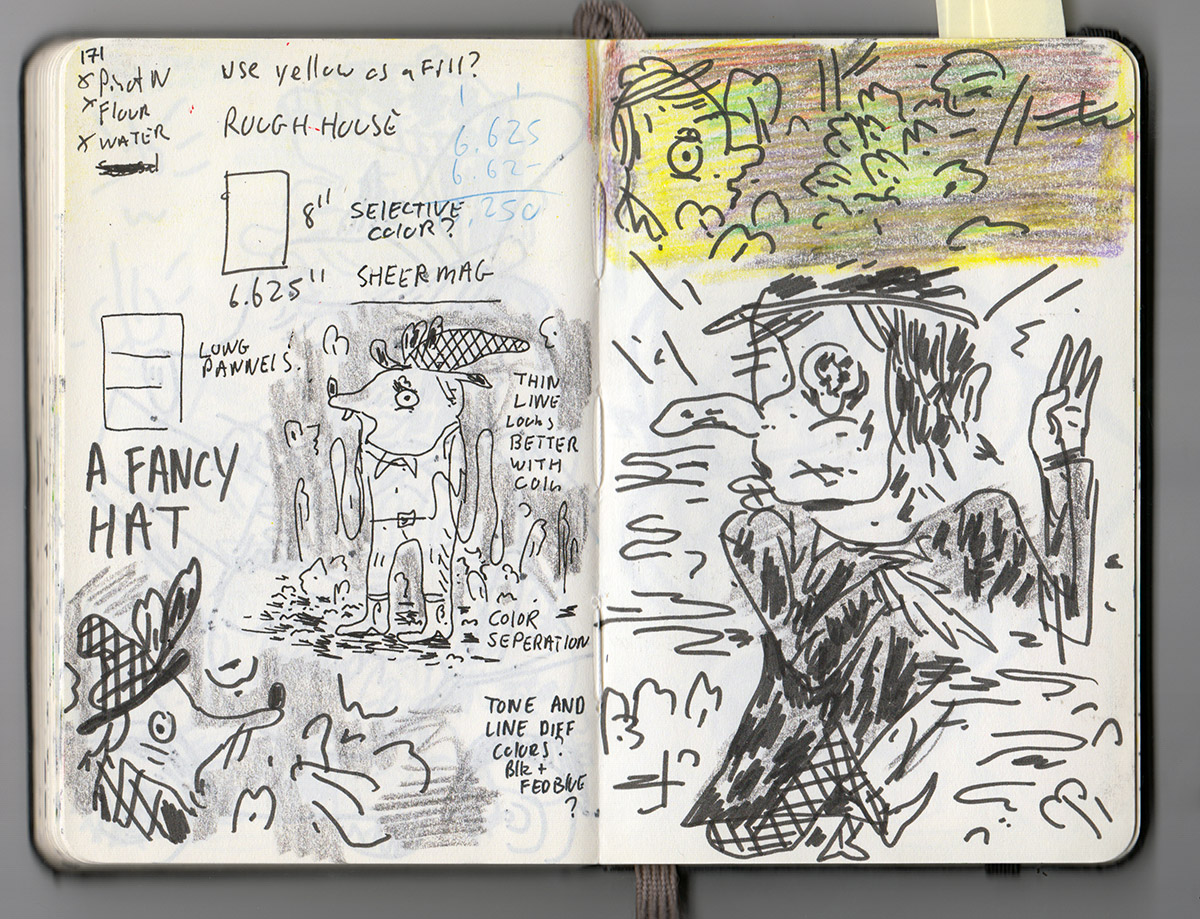 171
x Pivot N
x Flour
x WATER
Use yellow as a Fill?
ROUGH-HOUSE
6.625
6.62-
.250
8"
6.625"
SELECTIVE
COLOR?
SHEER MAG
LONG
PANNELS.
A FANCY
HAT
THIN
LINE
Looks
BETTER
WITH
COLOR
SEPERATION
TONE AND
LINE DIFF
COLORS?
Blk +
FED BLUE
?